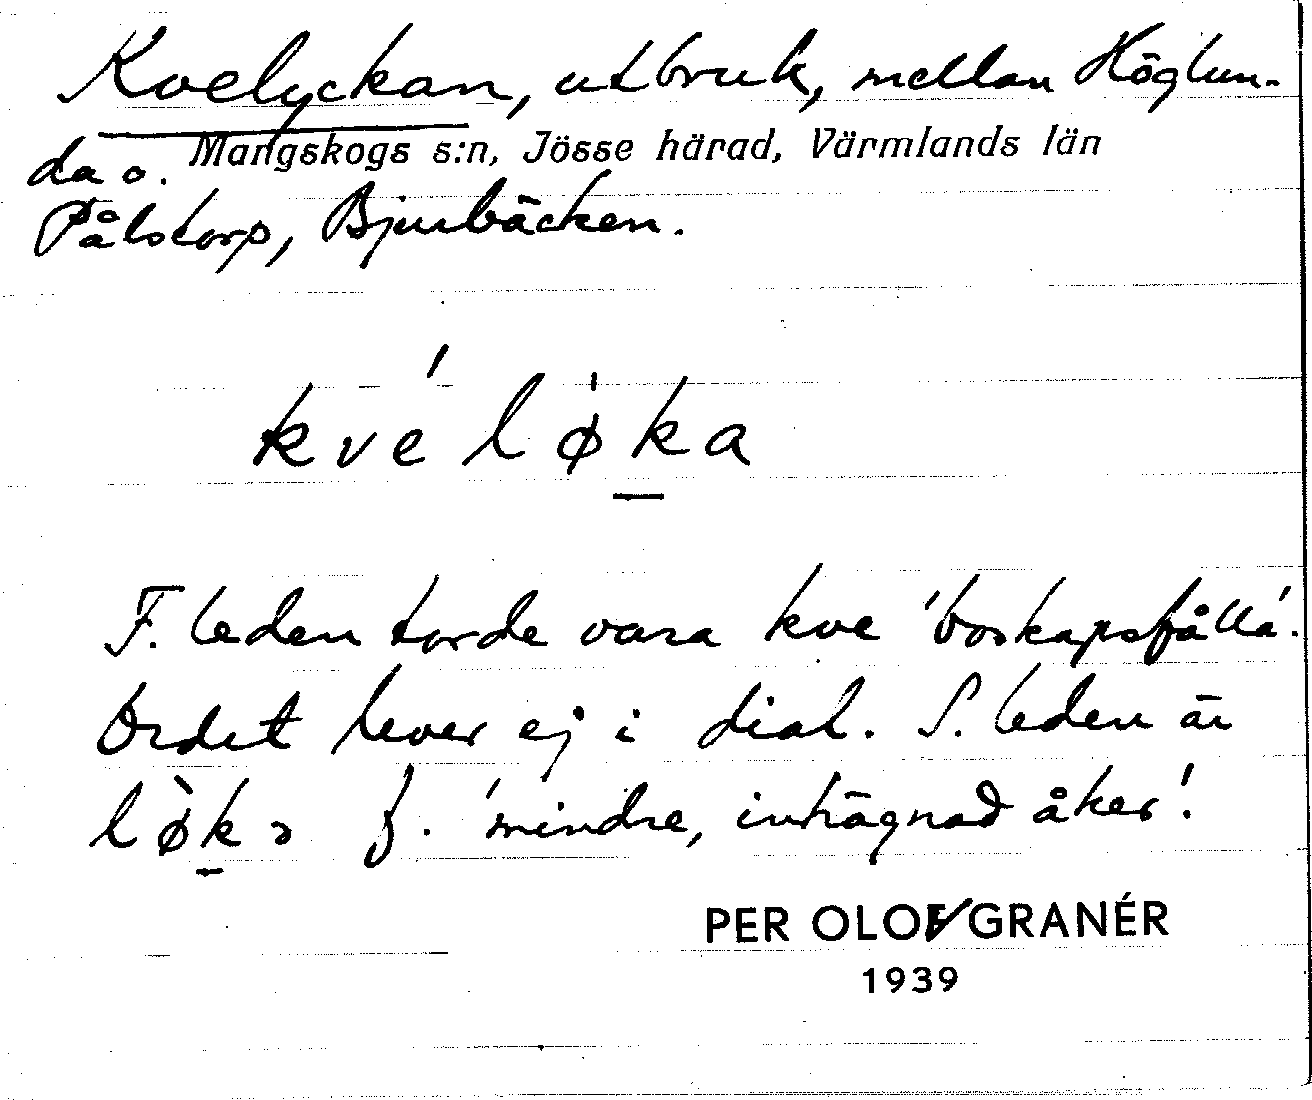 Kvelyckan, utbruk, mellan Höglun-
da o. Mangskogs s:n, Jösse härad, Värmlands län
Pålstorp, Bjurbäcken.
kve´ lø̍ka
F. leden torde vara kve 'boskapsfålla'.
Ordet lever ej i dial. S. leden är
lø̀kə f. 'mindre, inhägnad åker'.
PER OLOF GRANÉR
1939